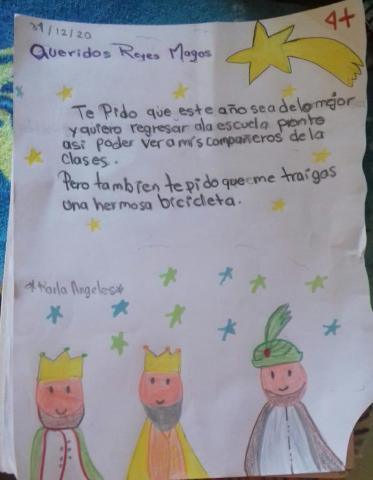 31/12/20
A+
Queridos Reyes Magos
Te Pido que este año sea de lo mejor
y quiero regresar ala escuela pronto
asi poder ver a mis compañeros de la
clases.
Pero tambien te pido que me traigas
una hermosa bicicleta.
*Karla Angeles*